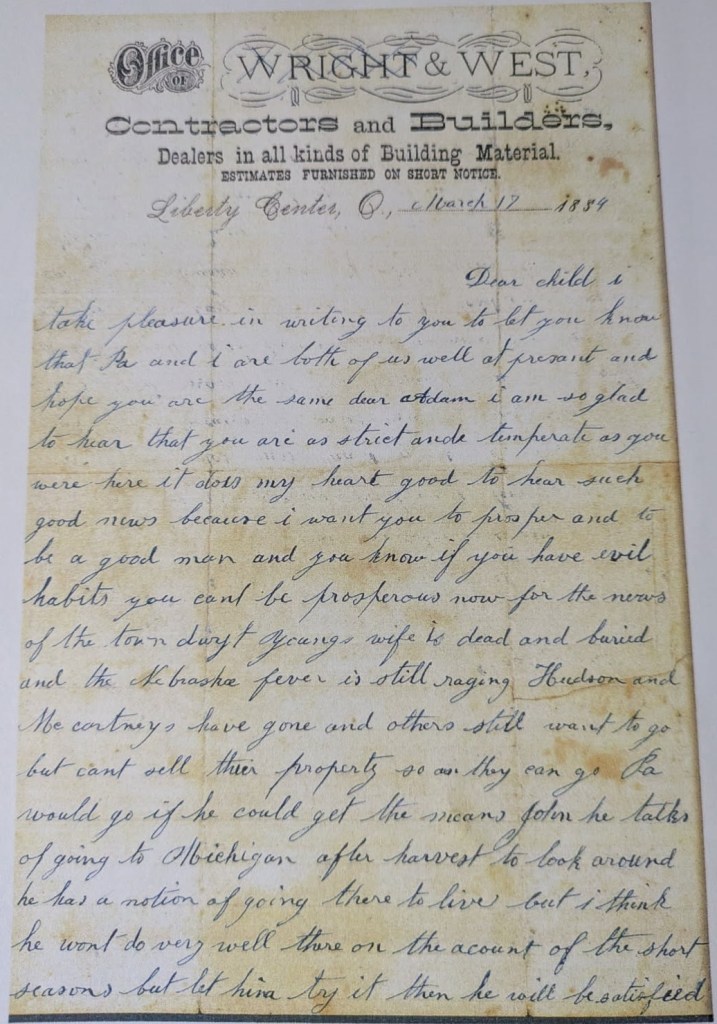 Office OF WRIGHT & WEST,
Contractors and Builders,
Dealers in all kinds of Building Material.
ESTIMATES FURNISHED ON SHORT NOTICE.
Liberty Center, O., March 17 1889
Dear child i
take pleasure in writing to you to let you know
that Pa and i are both of us well at presant and
hope you are the same dear Adam i am so glad
to hear that you are as strict ande temperate as you
were here it does my heart good to hear such
good news because i want you to prosper and to
be a good man and you know if you have evil
habits you cant be prosperous now for the news
of the town dwyt Youngs wife is dead and buried
and the Nebraska fever is still raging Hudson and
Mc cartneys have gone and others still want to go
but cant sell thier property so as they can go Pa
would go if he could get the means John he talks
of going to Michigan after harvest to look around
he has a notion of going there to live but i think
he wont do very well there on the acount of the short
seasons but let him try it then he will be satisfied